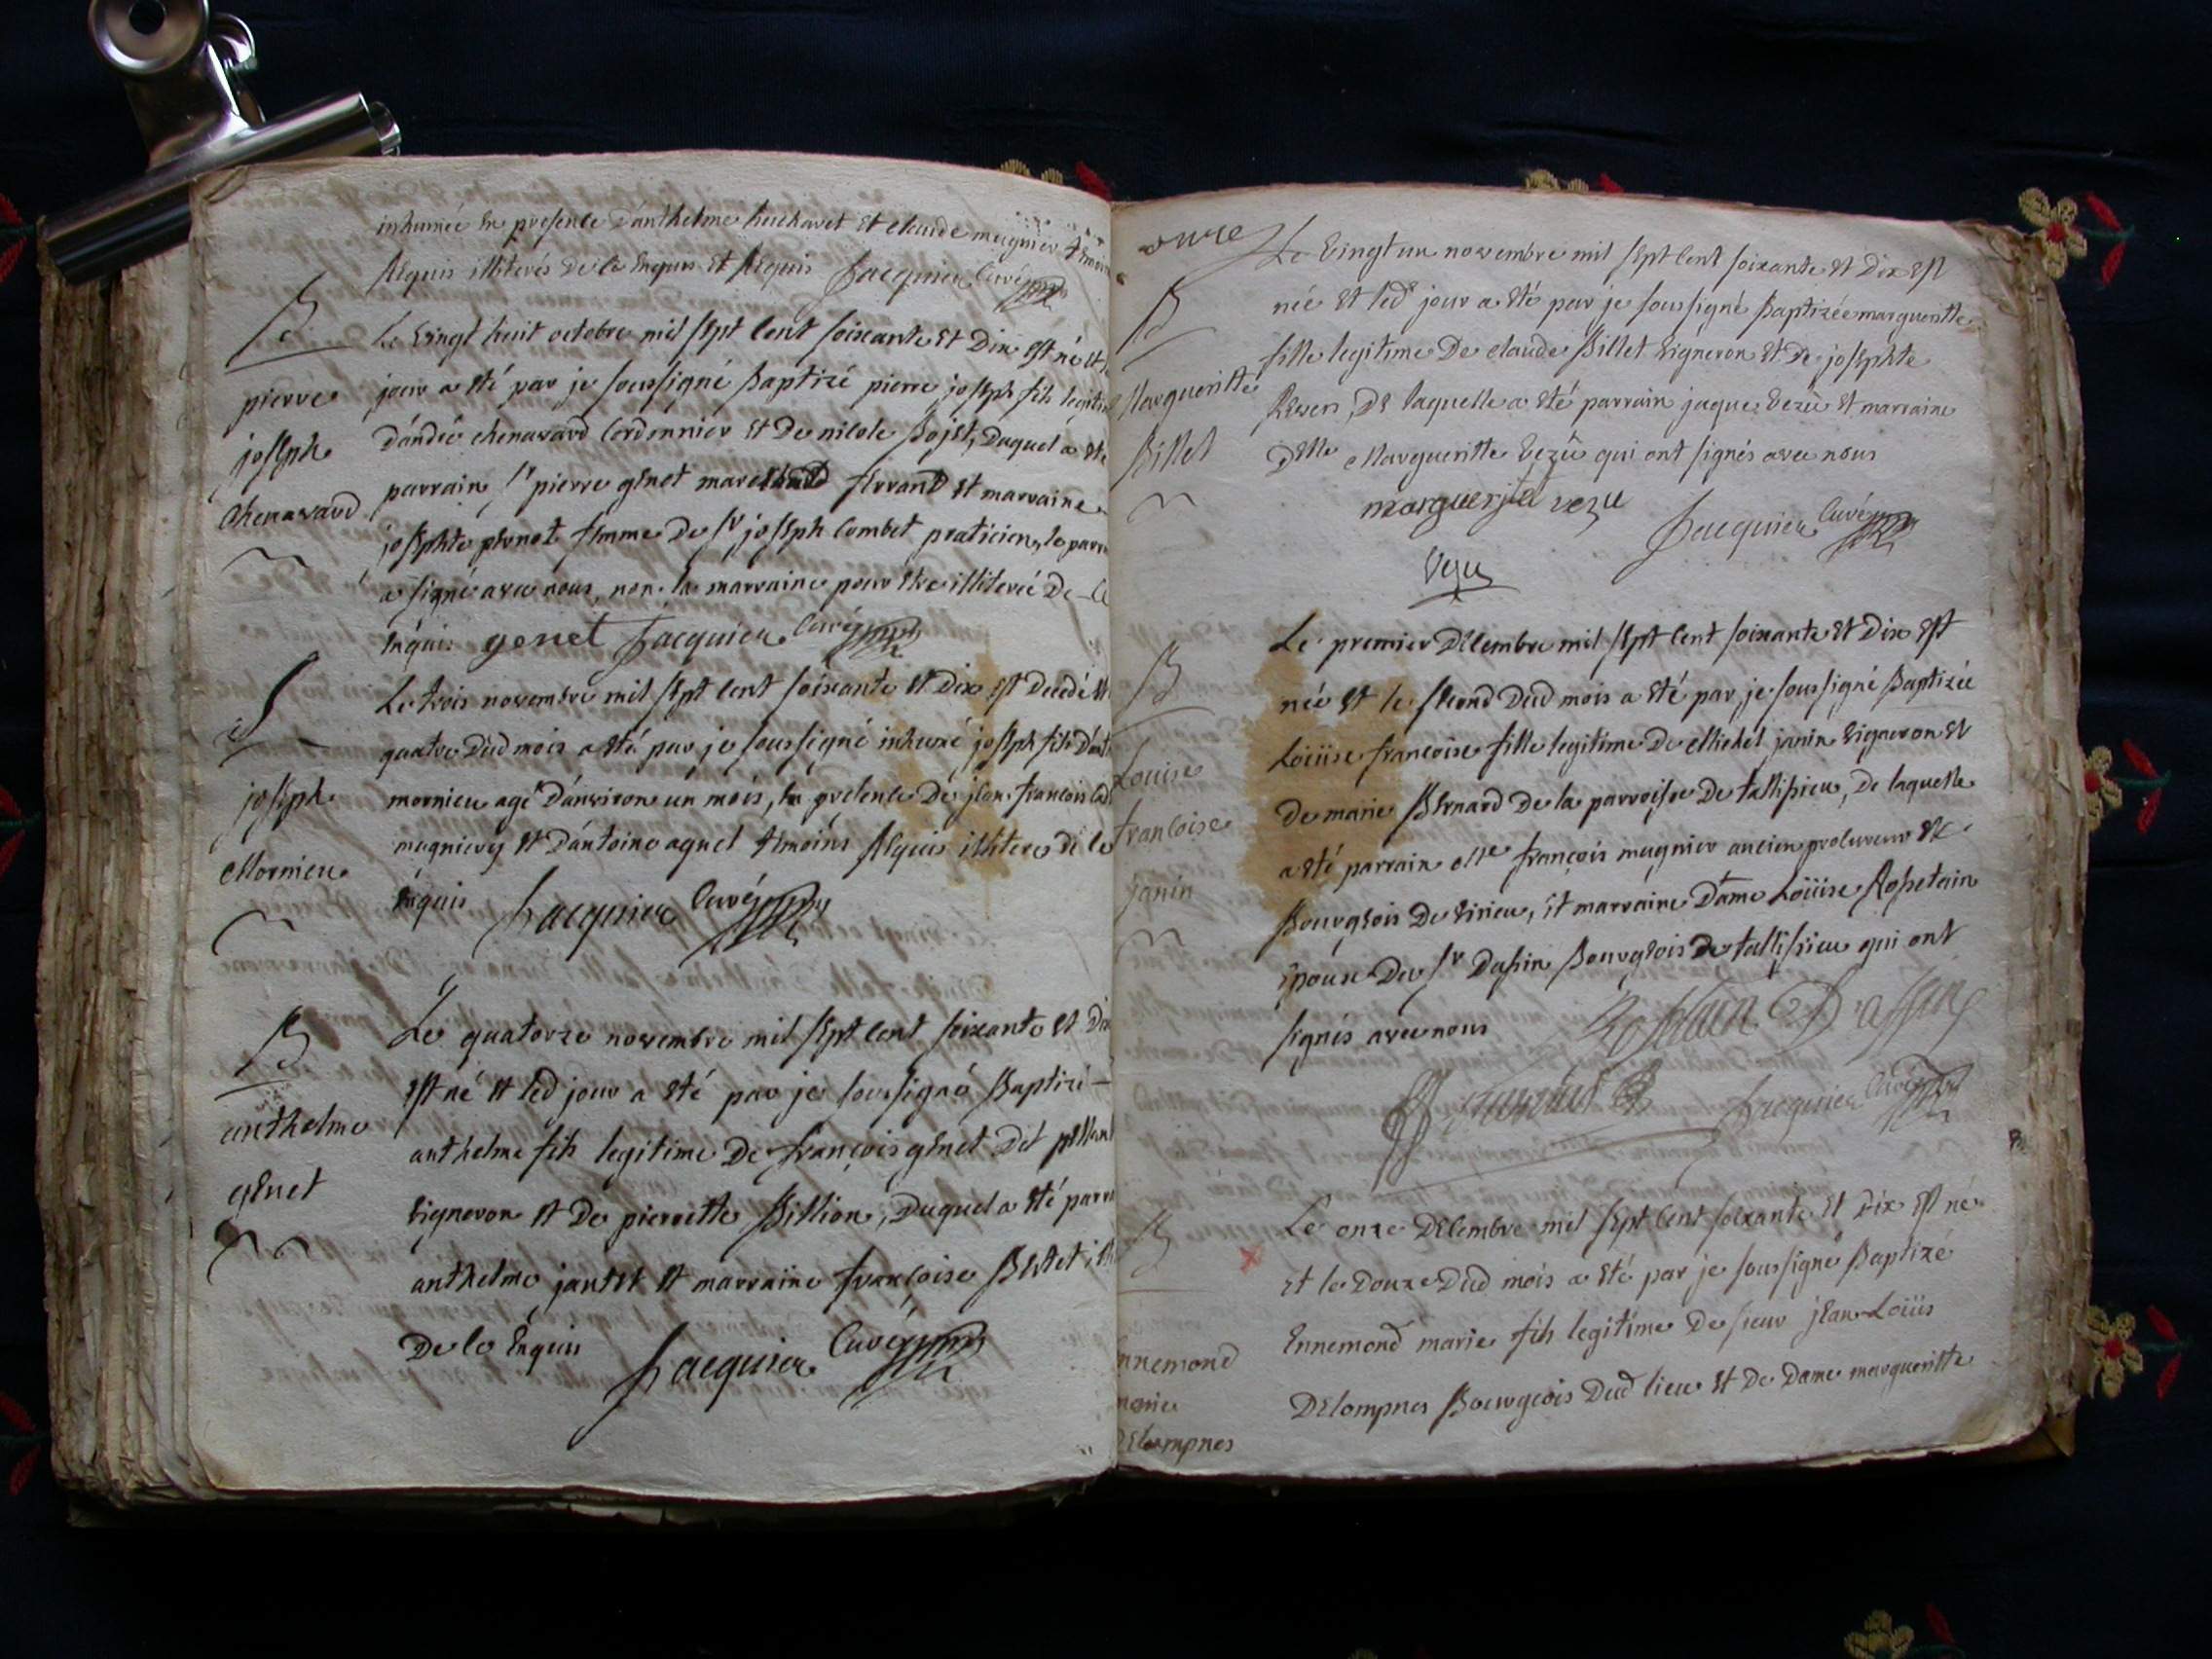 inhumée en presence d'anthelme huchavet et claude mugnier
Requis illiterés de ce enquis et Requis Jacquier Curé
B
Le vingt huit octobre mil sept cent soixante et dix est né et
pierre
jour a été par je soussigné Baptizé pierre joseph fils legitim
joseph
chenavard cordonnier et de nicole Bojet, duquel a été
Chenavard
parrain Sr pierre genet marechand ferrand et marraine
josephte pernot femme de Sr joseph Combet praticien, le parr
a signé avec nous, non la marraine pour etre illiterée de ce
enquis genet Jacquier Curé
S
Le trois novembre mil sept cent soixante et dix est decedé et
quatre dud mois a été par je soussigné inhumé joseph fils d'ant
joseph
mornieu agé d'environ un mois, en presence de jean françois
Mornieu
mugniery et d'antoine aquel temoins Requis illiteres de ce
enquis Jacquier Curé
B
Le quatorze novembre mil sept cent soixante et dix
est né et led jour a été par je soussigné Baptizé
anthelme
anthelme fils legitime de françois genet dit
genet
vigneron et de pierrette Billion, duquel a été parr
anthelme jantet et marraine françoise Bertet
de ce enquis Jacquier Curé
B
Le vingt un novembre mil sept cent soixante et dix est
née et led jour a été par je soussigné Baptizée margueritte
fille legitime de claude Billet vigneron et de josephte
Margueritte
de laquelle a été parrain jaque vezu et marraine
Billet
Delle Margueritte vezû qui ont signés avec nous
marguerite vezu Jacquier Curé
Vezu
B
Le premier decembre mil sept cent soixante et dix est
née et le second dud mois a été par je soussigné Baptizée
Louise
Loüise françoise fille legitime de Michel janin vigneron et
de marie Bernard de la parroisse de tallissieu, de laquelle
francoise
a été parrain Me françois mugnier ancien procureur et
janin
Bourgeois de virieu, et marraine Dame Loüise Rostain
epouse de Sr Dassin Bourgeois de tallissieu qui ont
signés avec nous Rostain Dassin
Jacquier Curé
B
Le onze decembre mil sept cent soixante et dix est né
et le douze dud mois a été par je soussigné Baptizé
Ennemond marie fils legitime de sieur jean Loüis
nnemond
marie
Delompnes Bourgeois dud lieu et de dame margueritte
Delompnes